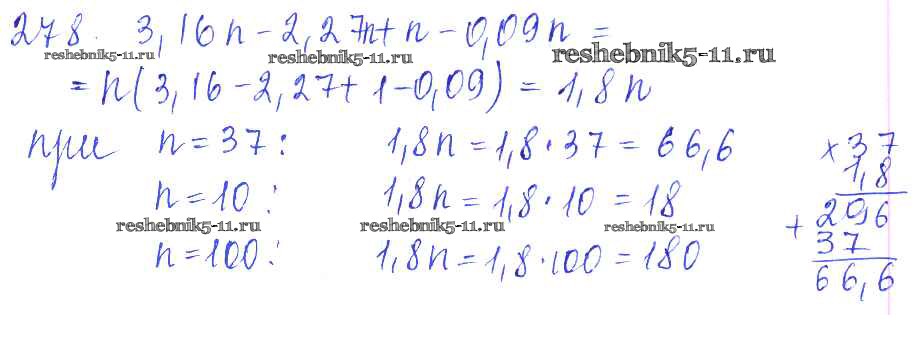 278. 3,16n - 2,27n + n - 0,09n =
reshebnik5-11.ru reshebnik5-11.ru reshebnik5-11.ru
= n(3,16 - 2,27 + 1 - 0,09) = 1,8n
при n = 37: 1,8n = 1,8 · 37 = 66,6
n = 10: 1,8n = 1,8 · 10 = 18
reshebnik5-11.ru reshebnik5-11.ru reshebnik5-11.ru
n = 100: 1,8n = 1,8 · 100 = 180
× 37
1,8
+ 29,6
37
66,6